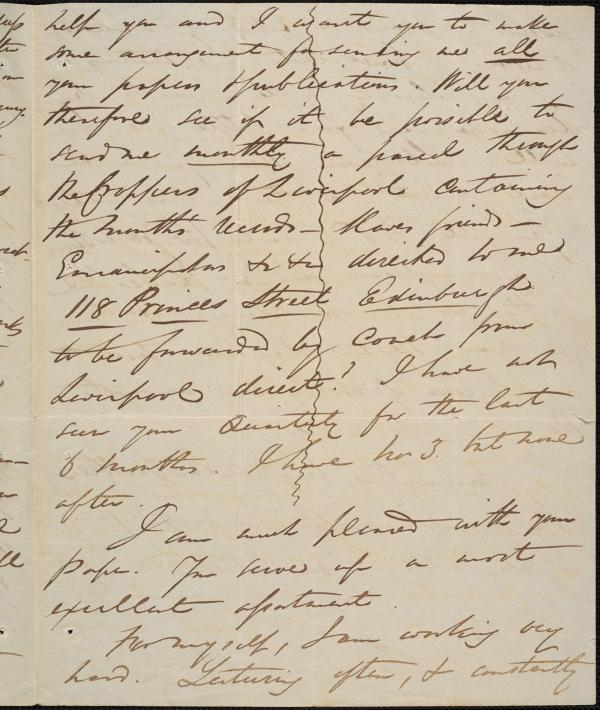 help you and I want you to make
some arrangement for sending me all
your papers & publications. Will you
therefore see if it be possible to
send me monthly a parcel through
the Croppers of Liverpool containing
the months records – Slaves friends –
Emancipators &c &c directed to me
118 Princes Street Edinburgh
to be forwarded by coach from
Liverpool direct? I have not
seen your Quarterly for the last
6 months. I have No 3. but none
after.
I am much pleased with your
paper. You serve up a most
excellent
For myself, I am working very
hard. Lecturing often, & constantly